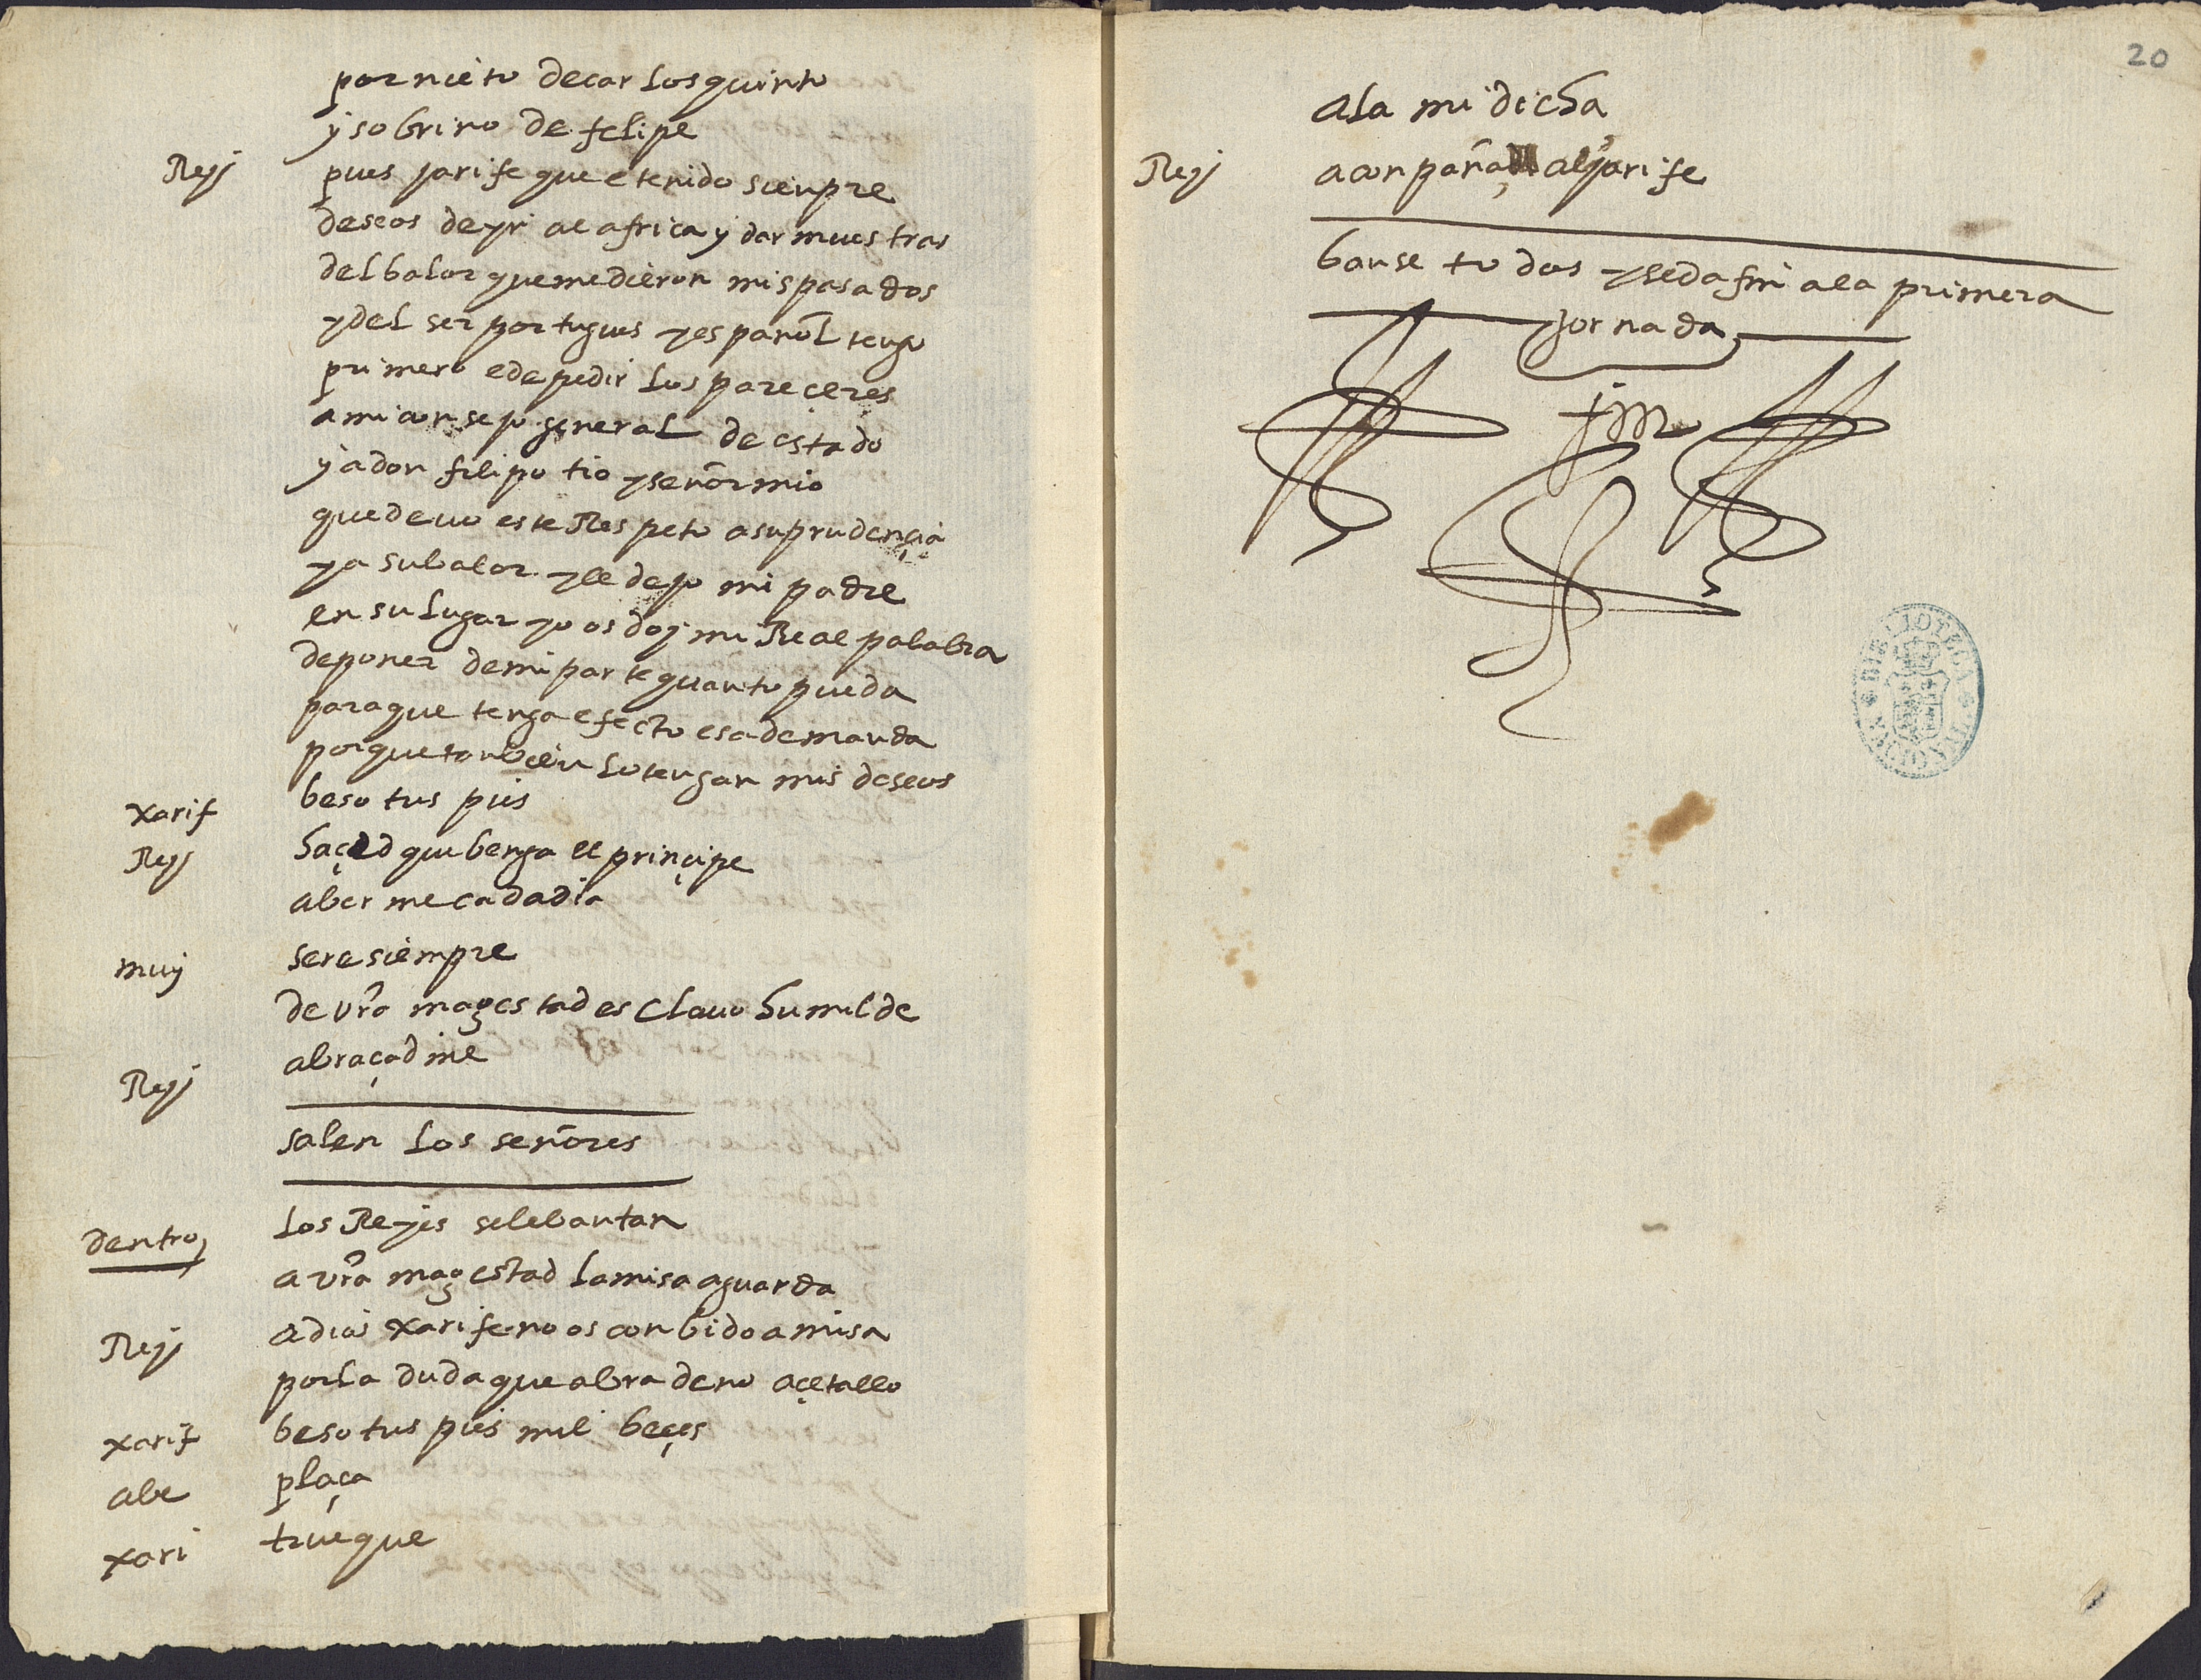 por nieto de carlos quinto
y sobrino de felipe
Rey pues jarife que e tenido sienpre
deseos de yr al africa y dar muestras
del balor que me dieron mis pasados
y del ser portugues y español tengo
primero e de pedir los pareçeres
a mi consejo general de estado
y a don filipo tio y señor mio
que devo este Respeto a su prudençia
y a su balor y le dejo mi padre
en su lugar yo os doy mi Real palabra
de poner de mi parte quanto pueda
para que tenga efecto esa demanda
porque tanbien lo tengan mis deseos
xarif beso tus pies
Rey haçed que benga el prinçipe
a berme cada dia
muy sere siempre
de vrã magestad esclavo humilde
Rey abraçadme
salen los señores
dentro los Reyes se lebantan
a vrã magestad la misa aguarda
Rey adios xarife no os conbido a misa
por la duda que abra de no açetallo
xarif beso tus pies mil beçes
abe plaça
xari trueque
20
a la mi dicha
Rey aconpaña al jarife
banse todos y se da fin a la primera
jornada
BIBLIOTECA NACIONAL